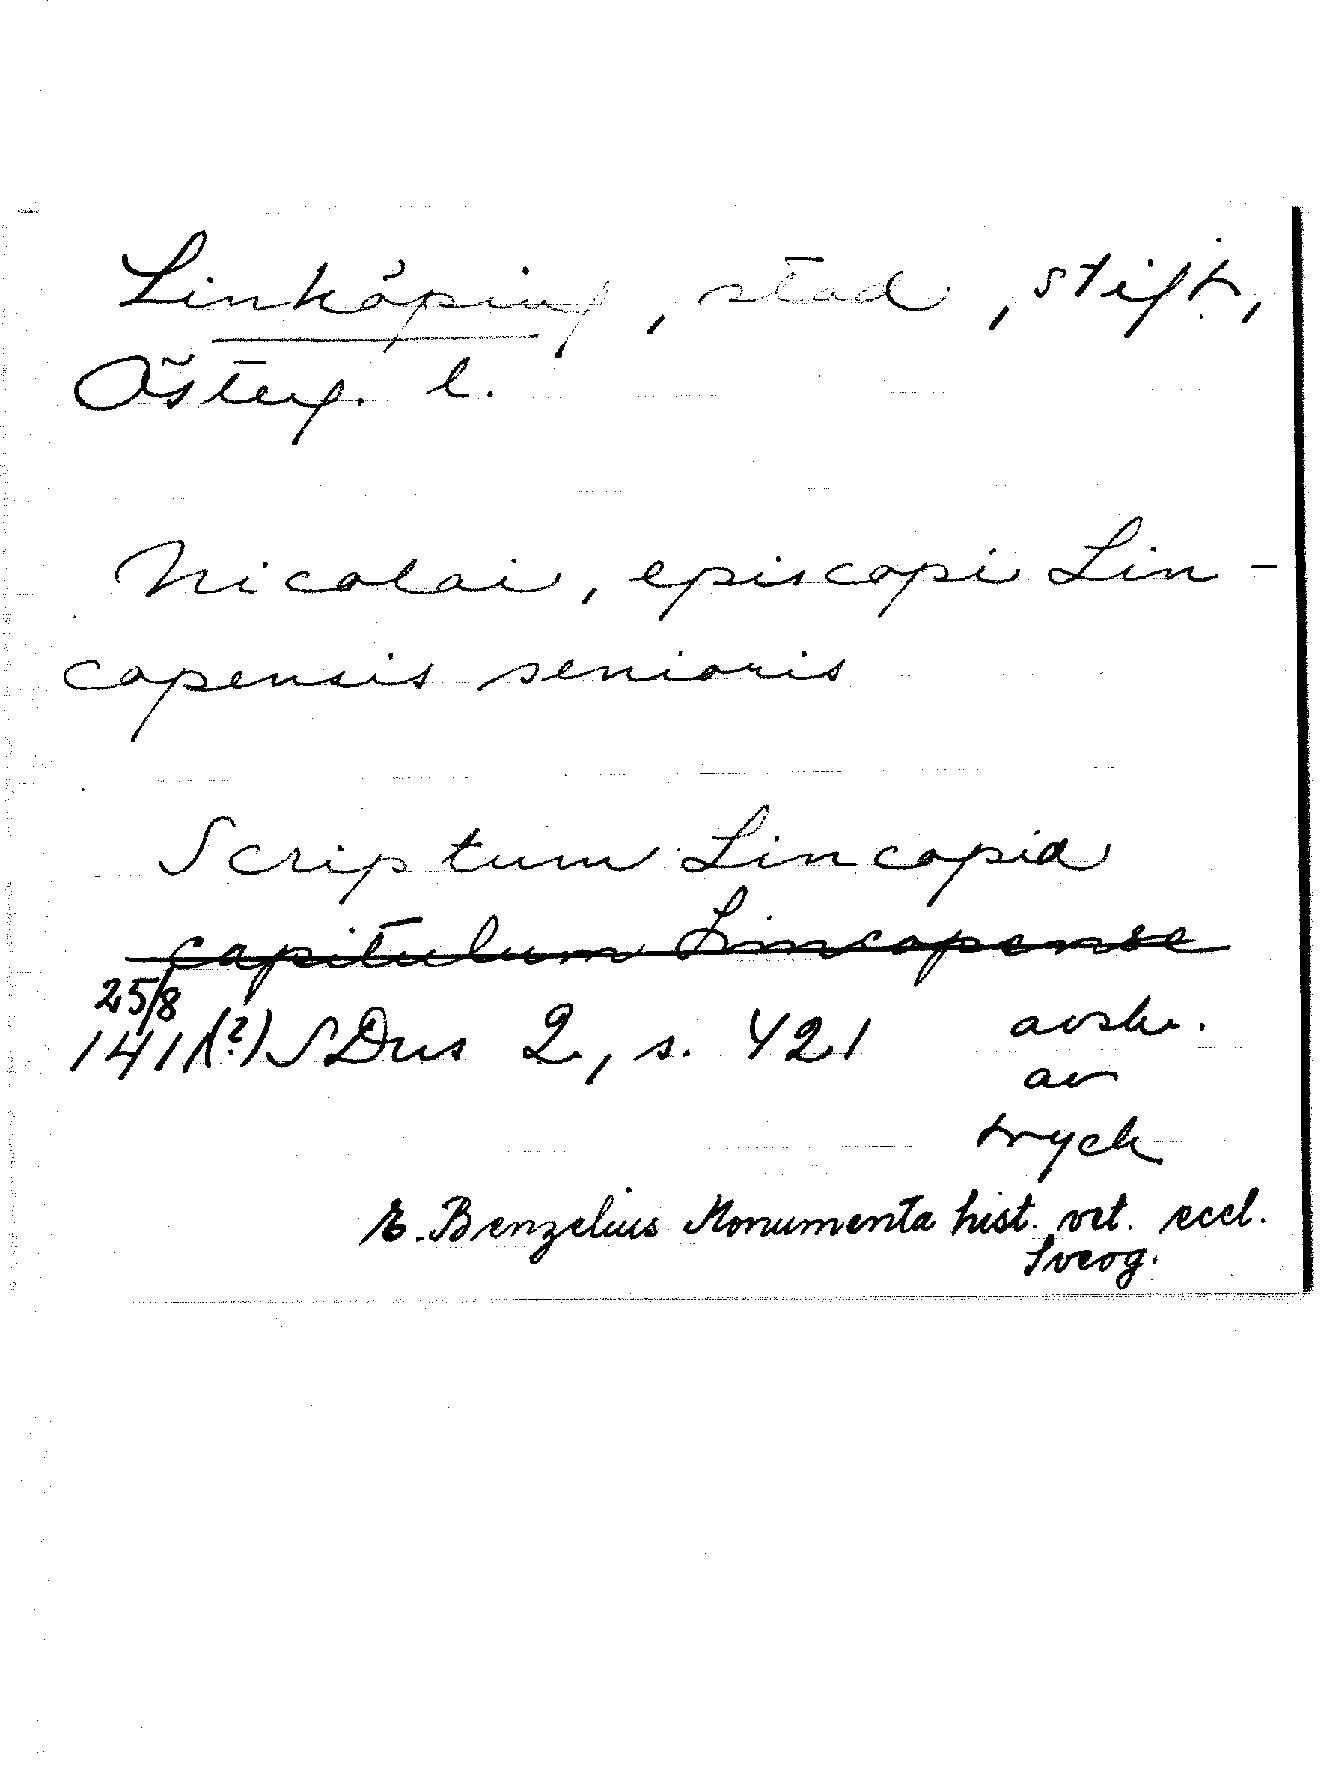 Linköping, stad, stift,
Österg. l.
Nicolai, episcopi Lin-
copensis senioris
Scriptum Lincopia
capitulum Lincopense
25/8
1411(?) SDns 2, s. 421 avskr.
av
tryck
E. Benzelius Monumenta hist. vet. eccl.
Sveog.